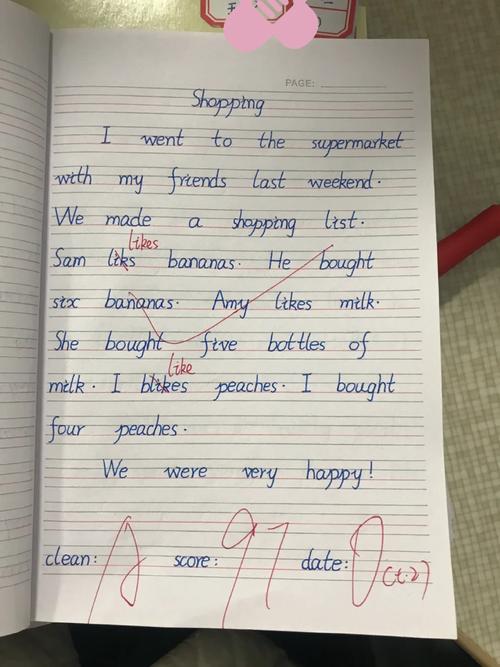 PAGE:
Shopping
I went to the supermarket
with my friends last weekend.
We made a shopping list.
likes
Sam liks bananas. He bought
six bananas. Amy likes milk.
She bought five bottles of
like
milk. I blikes peaches. I bought
four peaches.
We were very happy!
clean: A score: 97 date: